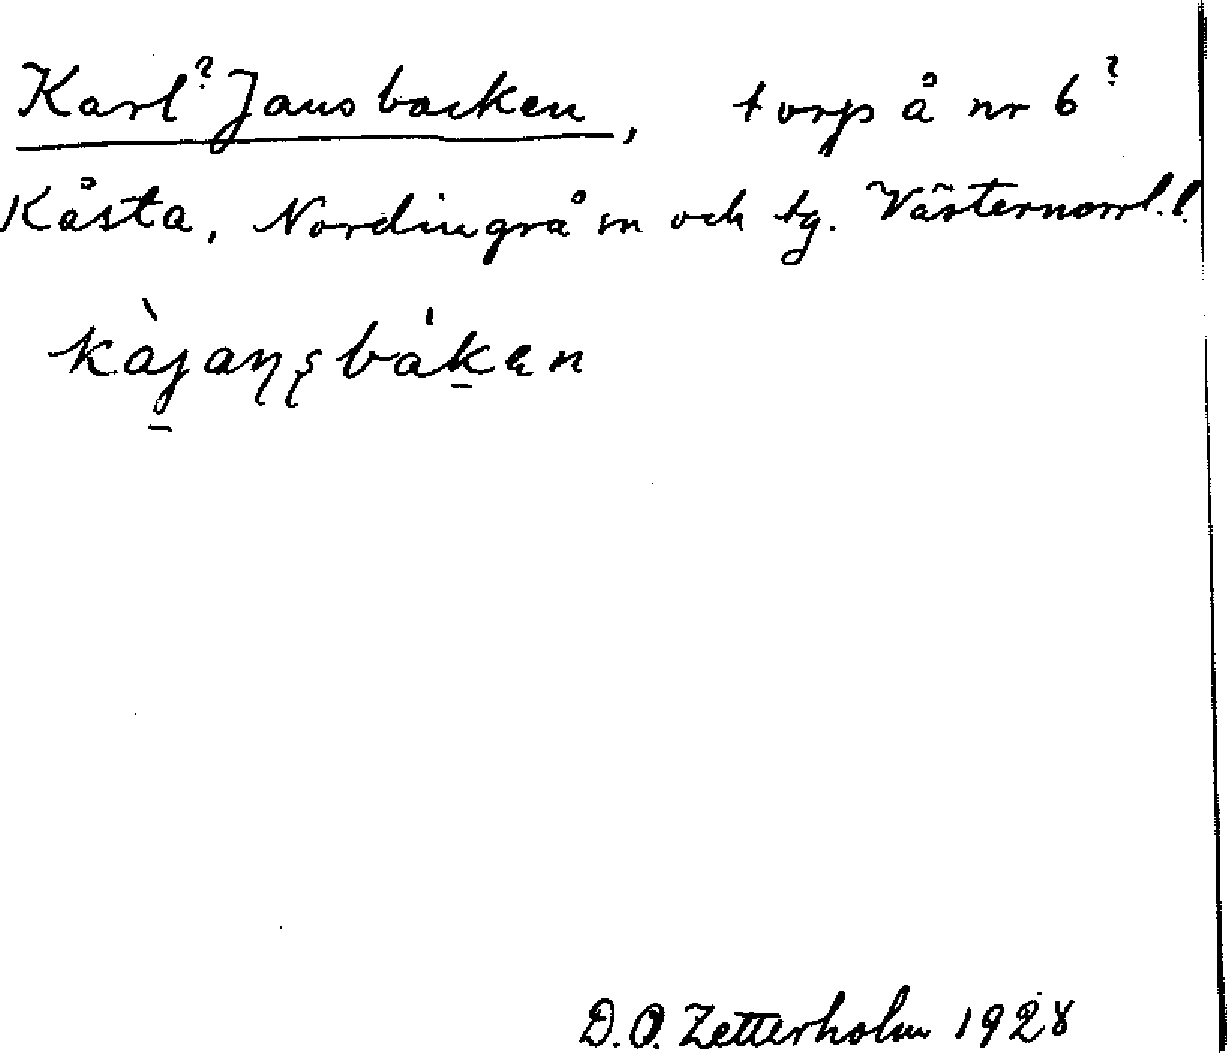 Karl? Jansbacken, torp å nr 6?
Kåsta, Nordingrå sn och tg. Västernorrl. l.
kàjaɳʂbáken
D. O. Zetterholm 1928